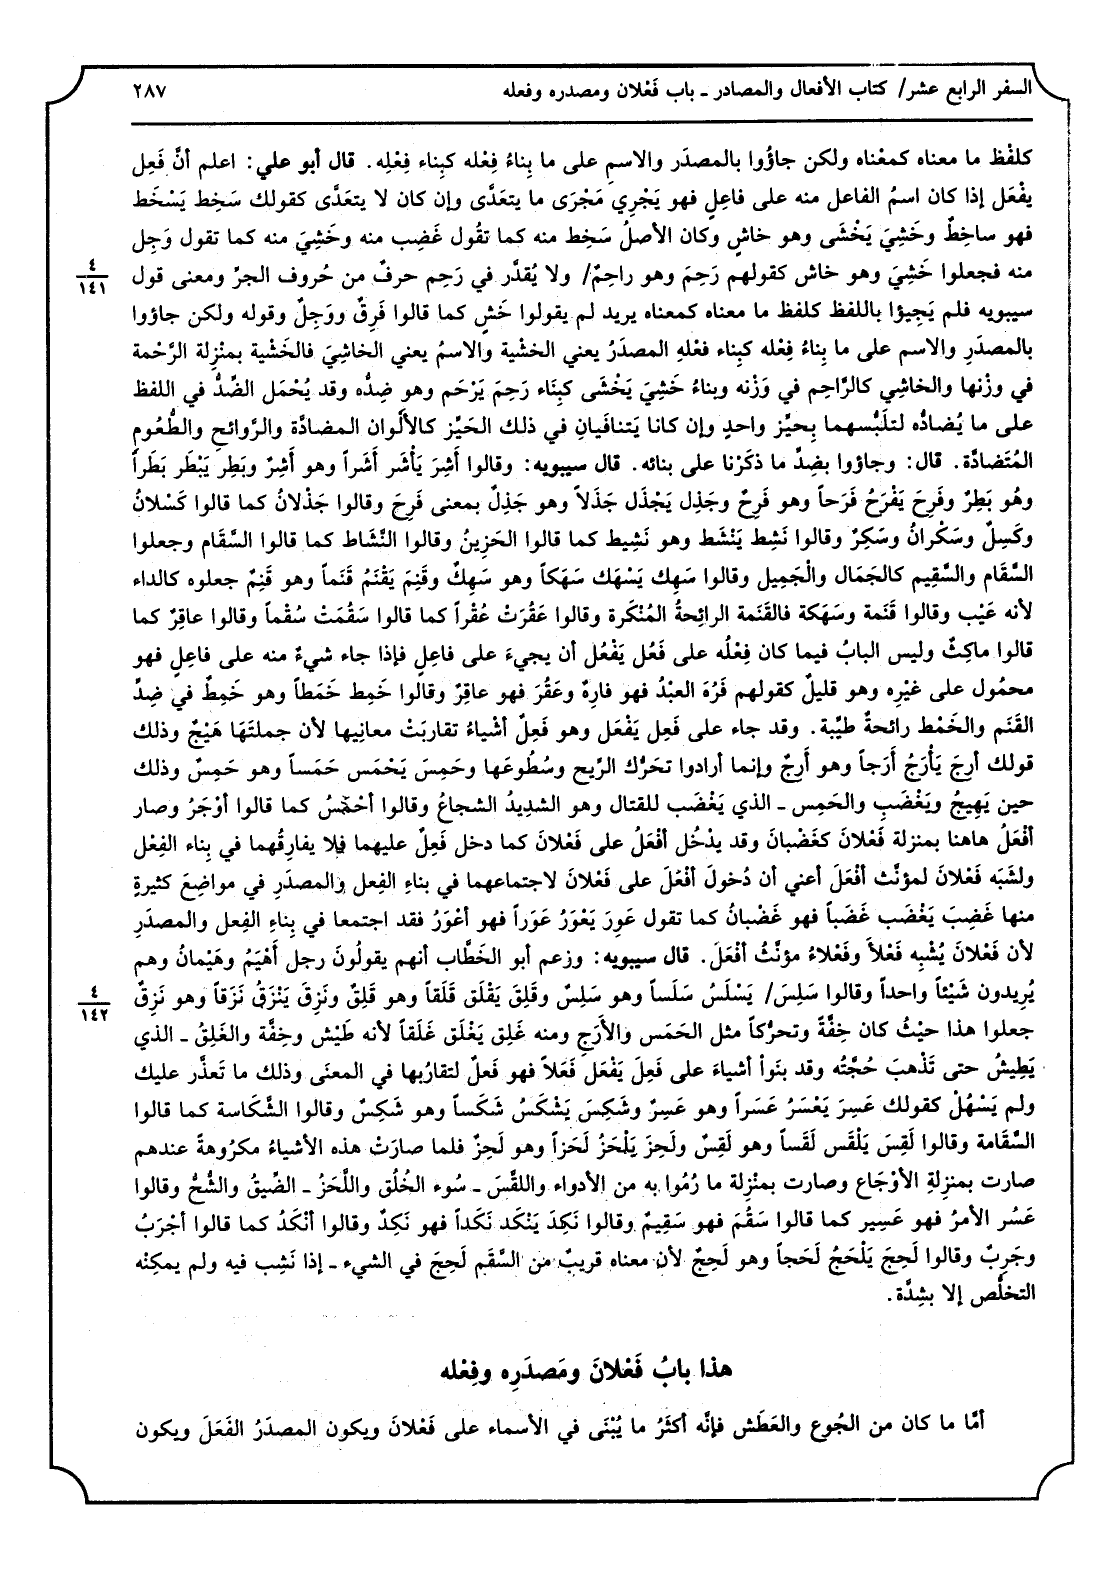 السفر الرابع عشر/ كتاب الأفعال والمصادر ـ باب فَعْلان ومصدره وفعله ٢٨٧
كلفْظ ما معناه كمعْناه ولكن جاؤوا بالمصدَر والاسمِ على ما بِناءُ فِعْله كبِناء فِعْلِه. قال أبو علي: اعلم أنَّ فَعِل
يفْعَل إذا كان اسمُ الفاعل منه على فاعِلٍ فهو يَجْرِي مَجْرَى ما يتعَدَّى وإن كان لا يتعَدَّى كقولك سَخِط يَسْخَط
فهو ساخِطٌ وخَشِيَ يَخْشَى وهو خاشٍ وكان الأصلُ سَخِط منه كما تقُول غَضِب منه وخَشِيَ منه كما تقول وَجِل
منه فجعلوا خَشِيَ وهو خاش كقولهم رَحِمَ وهو راحِمٌ/ ولا يُقدَّر في رَحِم حرفٌ من حُروف الجرِّ ومعنى قول
٤
١٤١
سيبويه فلم يَجِيؤا باللفظ كلفظ ما معناه كمعناه يريد لم يقولوا خَشٍ كما قالوا فَرِقٌ ووَجِلٌ وقوله ولكن جاؤوا
بالمصدَرِ والاسم على ما بِناءُ فِعْله كبِناء فعْلهِ المصدَرُ يعني الخشية والاسمُ يعني الخاشِيَ فالخَشْية بمنْزِلة الرَّحْمة
في وزْنها والخاشي كالرَّاحِم في وَزْنه وبناءُ خَشِيَ يَخْشَى كبِنَاء رَحِمَ يَرْحَم وهو ضِدُّه وقد يُحْمَل الضِّدُّ في اللفظ
على ما يُضادُّه لتلَبُّسهما بِحيِّز واحدٍ وإن كانا يَتنافَيانِ في ذلك الحَيِّز كالألْوان المضادَّة والرَّوائحِ والطُّعومِ
المُتَضادَّة. قال: وجاؤوا بضِدِّ ما ذكَرْنا على بنائه. قال سيبويه: وقالوا أَشِرَ يَأْشَر أَشَراً وهو أَشِرٌ وبَطِر يَبْطَر بَطَراً
وهُو بَطِرٌ وفَرِحَ يَفْرَحُ فَرَحاً وهو فَرِحٌ وجَذِل يَجْذَل جَذَلاً وهو جَذِلٌ بمعنى فَرِحَ وقالوا جَذْلانُ كما قالوا كَسْلانُ
وكَسِلٌ وسَكْرانُ وسَكِرٌ وقالوا نَشِط يَنْشَط وهو نَشِيط كما قالوا الحَزِينُ وقالوا النَّشَاط كما قالوا السَّقَام وجعلوا
السَّقَام والسَّقِيم كالجَمَال والْجَمِيل وقالوا سَهِك يَسْهَك سَهَكاً وهو سَهِكٌ وقَنِمَ يَقْنَمُ قَنَماً وهو قَنِمٌ جعلوه كالداء
لأنه عَيْب وقالوا قَنَمة وسَهَكة فالقَنَمة الرائِحةُ المُنْكَرة وقالوا عَقُرَتْ عُقْراً كما قالوا سَقُمَتْ سُقْماً وقالوا عاقِرٌ كما
قالوا ماكِثٌ وليس البابُ فيما كان فِعْلُه على فَعُل يَفْعُل أن يجيءَ على فاعِلٍ فإذا جاء شيءٌ منه على فاعِلٍ فهو
محمُول على غيْرِه وهو قليلٌ كقولهم فَرُهَ العبْدُ فهو فارِهٌ وعَقُرَ فهو عاقِرٌ وقالوا خَمِط خَمَطاً وهو خَمِطٌ في ضِدِّ
القَنَم والخَمْط رائحةٌ طيِّبة. وقد جاء على فَعِل يَفْعَل وهو فَعِلٌ أشْياءُ تقاربَتْ معانِيها لأن جملتَهَا هَيْجٌ وذلك
قولك أَرِجَ يَأْرَجُ أَرَجاً وهو أَرِجٌ وإنما أرادوا تحَرُّك الرِّيح وسُطُوعَها وحَمِسَ يَحْمَس حَمَساً وهو حَمِسٌ وذلك
حين يَهِيجُ ويَغْضَبِ والحَمِس ـ الذي يَغْضَب للقتال وهو الشدِيدُ الشجاعُ وقالوا أحْمَسُ كما قالوا أوْجَرُ وصار
أفْعَلُ هاهنا بمنزلة فَعْلانَ كغَضْبانَ وقد يدْخُل أفْعَلُ على فَعْلانَ كما دخل فَعِلٌ عليهما فلا يفارِقُهما في بِناء الفِعْل
ولشَبَه فَعْلانَ لمؤنَّث أفْعَلَ أعني أن دُخولَ أفْعَلَ على فَعْلانَ لاجتماعهما في بناءِ الفِعل والمصدَرِ في مواضِعَ كثيرةٍ
منها غَضِبَ يَغْضَب غَضَباً فهو غَضْبانُ كما تقول عوِرَ يَعْوَرُ عوَراً فهو أعْوَرُ فقد اجتمعا في بِناءِ الفِعل والمصدَرِ
لأن فَعْلانَ يُشْبِه فَعْلاً وفَعْلاءُ مؤنَّثُ أفْعَلَ. قال سيبويه: وزعم أبو الخَطَّاب أنهم يقولُونَ رجل أَهْيَمُ وهَيْمانُ وهم
يُرِيدون شَيْئاً واحداً وقالوا سَلِسَ/ يَسْلَسُ سَلَساً وهو سَلِسٌ وقَلِقَ يَقْلَق قَلَقاً وهو قَلِقٌ ونَزِقَ يَنْزَقُ نَزَقاً وهو نَزِقٌ
٤
١٤٢
جعلوا هذا حيْثُ كان خِفَّةً وتحرُّكاً مثل الحَمَس والأَرَجِ ومنه غَلِق يَغْلَق غَلَقاً لأنه طَيْش وخِفَّة والغَلِقُ ـ الذي
يَطِيشُ حتى تَذْهبَ حُجَّتُه وقد بنَواْ أشياءَ على فَعِلَ يَفْعَل فَعَلاً فهو فَعِلٌ لتقارُبها في المعنَى وذلك ما تَعذَّر عليك
ولم يَسْهُلْ كقولك عَسِرَ يَعْسَرُ عَسَراً وهو عَسِرٌ وشَكِسَ يَشْكَسُ شَكَساً وهو شَكِسٌ وقالوا الشَّكَاسة كما قالوا
السَّقَامة وقالوا لَقِسَ يَلْقَس لَقَساً وهو لَقِسٌ ولَحِزَ يَلْحَزُ لَحَزاً وهو لَحِزٌ فلما صارَتْ هذه الأشياءُ مكرُوهةً عندهم
صارت بمنزلةِ الأوْجَاع وصارت بمنْزِلة ما رُمُوا به من الأدواء واللقَسُ ـ سُوء الخُلُق واللَّحَزُ ـ الضِّيقُ والشُّحُّ وقالوا
عَسُر الأمرُ فهو عَسِير كما قالوا سَقُمَ فهو سَقِيمٌ وقالوا نَكِدَ يَنْكَد نَكَداً فهو نَكِدٌ وقالوا أنْكَدُ كما قالوا أجْرَبُ
وجَرِبٌ وقالوا لَحِجَ يَلْحَجُ لَحَجاً وهو لَحِجٌ لأن معناه قريبٌ من السَّقَم لَحِجَ في الشيء ـ إذا نَشِب فيه ولم يمكِنْه
التخلُّص إلا بشِدَّة.
هذا بابُ فَعْلانَ ومَصدَرِه وفِعْله
أمَّا ما كان من الجُوع والعَطَش فإنَّه أكثَرُ ما يُبْنَى في الأسماء على فَعْلانَ ويكون المصدَرُ الفَعَلَ ويكون